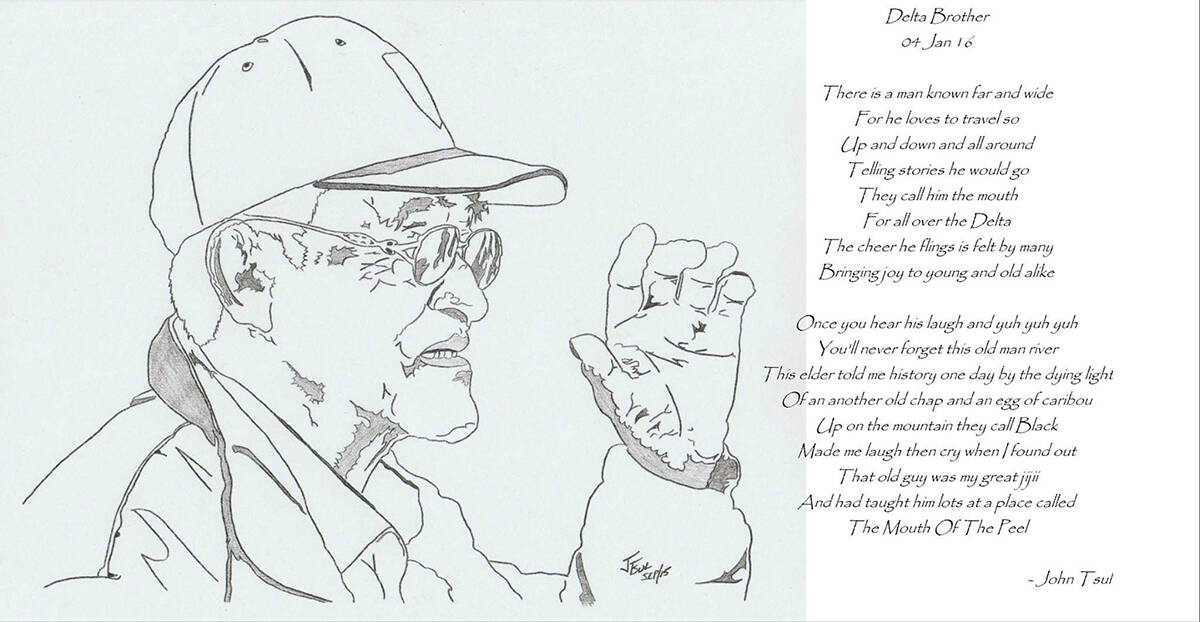 Delta Brother
04 Jan 16
There is a man known far and wide
For he loves to travel so
Up and down and all around
Telling stories he would go
They call him the mouth
For all over the Delta
The cheer he flings is felt by many
Bringing joy to young and old alike
Once you hear his laugh and yuh yuh yuh
You'll never forget this old man river
This elder told me history one day by the dying light
Of an another old chap and an egg of caribou
Up on the mountain they call Black
Made me laugh then cry when I found out
That old guy was my great jijii
And had taught him lots at a place called
The Mouth Of The Peel
- John Tsul
JTsul
SEP/15